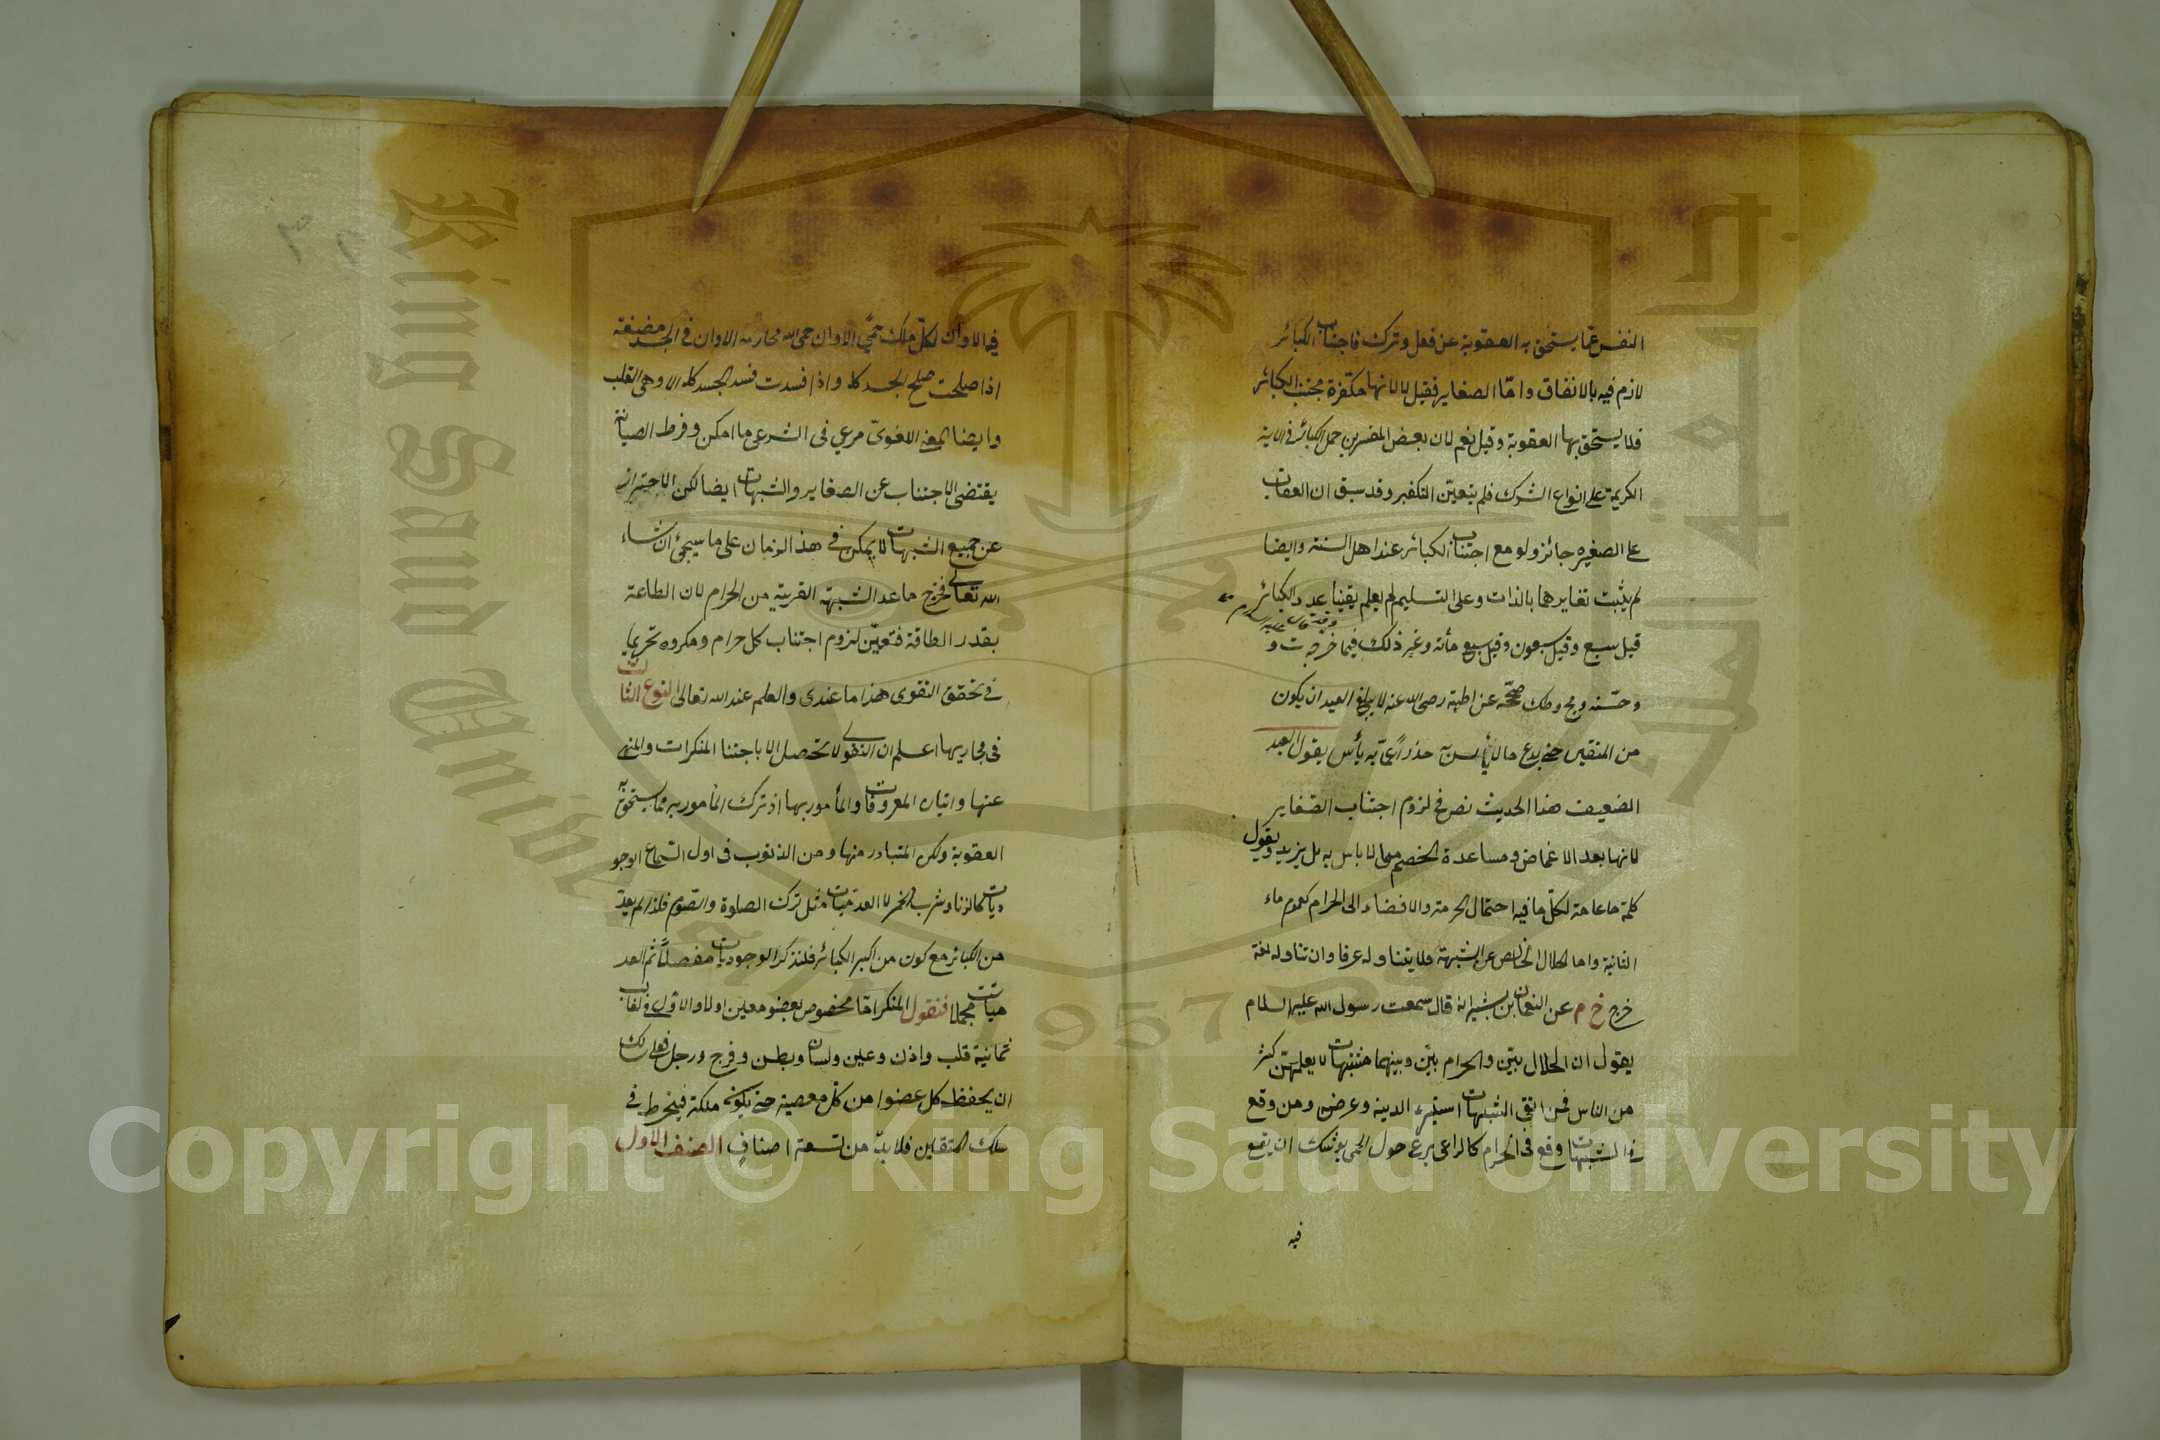 النفس عما يستحق به العقوبة عن فعل وترك فاجتناب الكبائر
لازم فيه بالاتفاق واما الصغاير فقيل لا لانها مكفرة مجتنب الكبائر
فلا يستحق بها العقوبة وقيل نعم لان بعض المفسرين حمل الكبائر في الاية
الكريمة على انواع الشرك فلم يتعين التكفير وقد سبق ان العقاب
على الصغيره جائز ولو مع اجتناب الكبائر عند اهل السنة وايضا
لم يثبت تغايرهما بالذات وعلى التسليم لم يعلم يقينا عدد الكبائر
قيل سبع وقيل سبعون وقيل سبع مأئة وغير ذلك فيما خرجه ت و
وحسنه وحج وحك صححه عن عطية رضى الله عنه لا يبلغ العبد ان يكون
من المتقين حتى يدع ما لا بأس به حذرا عما به بأس يقول العبد
الضعيف هذا الحديث نص في لزوم اجتناب الصغاير
لانها بعد الاغماض ومساعدة الخصم مما لا باس به بل يزيد ويقول
كلمة ما عامة لكل ما فيه احتمال الحرمة والافضاء الى الحرام كعموم ماء
الثانية واما الحلال الخالص عن الشبهة فلا يتناوله عرفا وان تناوله لغة
خرج خ م عن النعمان بن بشير انه قال سمعت رسول الله عليه السلام
يقول ان الحلال بين والحرام بين وبينهما مشتبهات لا يعلمهن كثير
من الناس فمن اتقى الشبهات استبرء لدينه وعرضه ومن وقع
في الشبهات وقع في الحرام كالراعى يرعى حول الحمى يوشك ان يقع
فيه
فيه الا وان لكل ملك حمى الا وان حمى الله محارمه الا وان في الجسد مضغة
اذا صلحت صلح الجسد كله واذا فسدت فسد الجسد كله الا وهى القلب
وايضا المعنى اللغوى مرعي فى الشرعى ما امكن وفرط الصيانة
يقتضى الاجتناب عن الصغاير والشبهات ايضا لكن الاحتراز
عن جميع الشبهات لا يمكن في هذا الزمان على ما سيجئ ان شاء
الله تعالى فخرج ما عدا الشبهة القريبة من الحرام لان الطاعة
بقدر الطاقة فتعين لزوم اجتناب كل حرام ومكروه تحريما
في تحقق التقوى هذا ما عندى والعلم عند الله تعالى النوع الثالث
فى مجاريها اعلم ان التقوى لا تحصل الا باجتناب المنكرات والمنهى
عنها واتيان المعروفات والمأمور بها اذ ترك المأمور به مما يستحق به
العقوبة ولكن المتبادر منها ومن الذنوب فى اول السماع الوجو
ديات كالزنا وشرب الخمر لا العدميات مثل ترك الصلوة والصوم فلذا لم يعد
من الكبائر مع كونه من اكبر الكبائر فلنذكر الوجوديات مفصلا ثم العد
ميات مجملا فنقول المنكر اما مخصوص بعضو معين اولا والاول في الغالب
ثمانية قلب واذن وعين ولسان ويد وبطن وفرج ورجل فعلى السالك
ان يحفظ كل عضو من كل معصية حتى يكون ملكة فينخرط فى
سلك المتقين فلابد من تسعة اصناف الصنف الاول
Copyright © King Saud University
King Saud University
1957